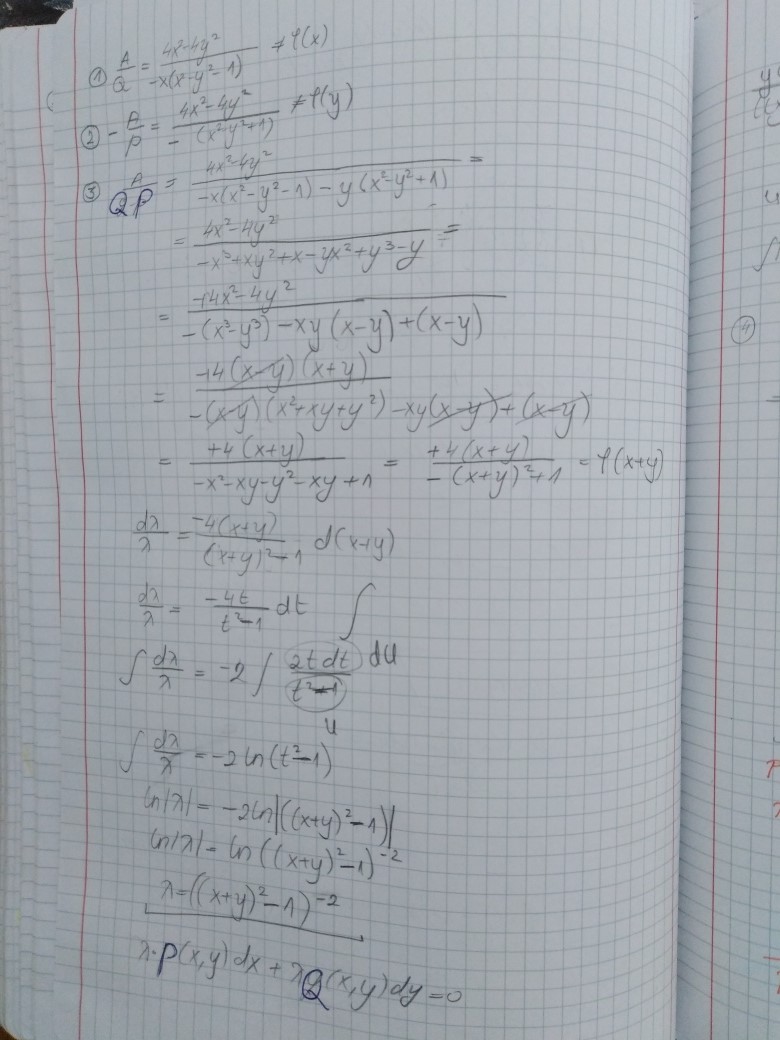 ① A/Q = (4x²-4y²)/(-x(x²-y²-1)) ≠ φ(x)
② -A/P = (4x²-4y²)/(-(x²-y²+1)) ≠ φ(y)
③ A/(Q-P) = (4x²-4y²)/(-x(x²-y²-1) - y(x²-y²+1)) =
= (4x²-4y²)/(-x³+xy²+x-yx²+y³-y) =
= (+4x²-4y²)/(-(x³-y³)-xy(x-y)+(x-y))
= (+4(x-y)(x+y))/(-(x-y)(x²+xy+y²)-xy(x-y)+(x-y))
= (+4(x+y))/(-x²-xy-y²-xy+1) = (+4(x+y))/(-(x+y)²+1) = φ(x+y)
dλ/λ = (-4(x+y))/((x+y)²-1) d(x+y)
dλ/λ = (-4t)/(t²-1) dt ∫
∫ dλ/λ = -2 ∫ (2t dt)/(t²-1) du
u
∫ dλ/λ = -2 ln(t²-1)
ln|λ| = -2ln|((x+y)²-1)|
ln|λ| = ln((x+y)²-1)⁻²
λ=((x+y)²-1)⁻²
λ·P(x,y)dx + λQ(x,y)dy=0
④